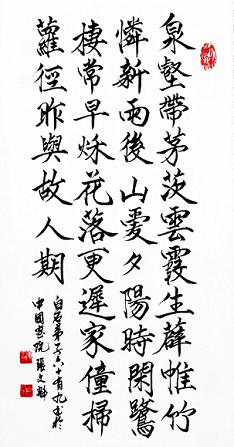 泉壑帶茅茨雲霞生薜帷竹
憐新雨後山愛夕陽時閑鷺
棲常早秌花落更遲家僮掃
蘿徑昨與故人期
六十有九書於
中國